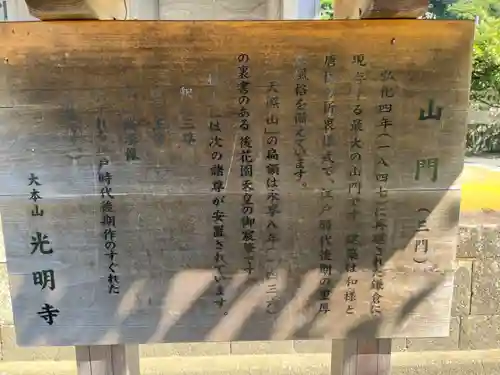 山門(三門)
弘化四年(一八四七)に再建された鎌倉に
現存する最大の山門です 建築は和様と
唐様の折衷様式で、江戸時代後期の重厚
な風格を備えています。
「天照山」の扁額は永享八年(一四三六)
の裏書のある後花園天皇の御宸筆です
は次の諸尊が安置されています。
釈 三尊
れも江戸時代後期作のすぐれた
大本山 光明寺